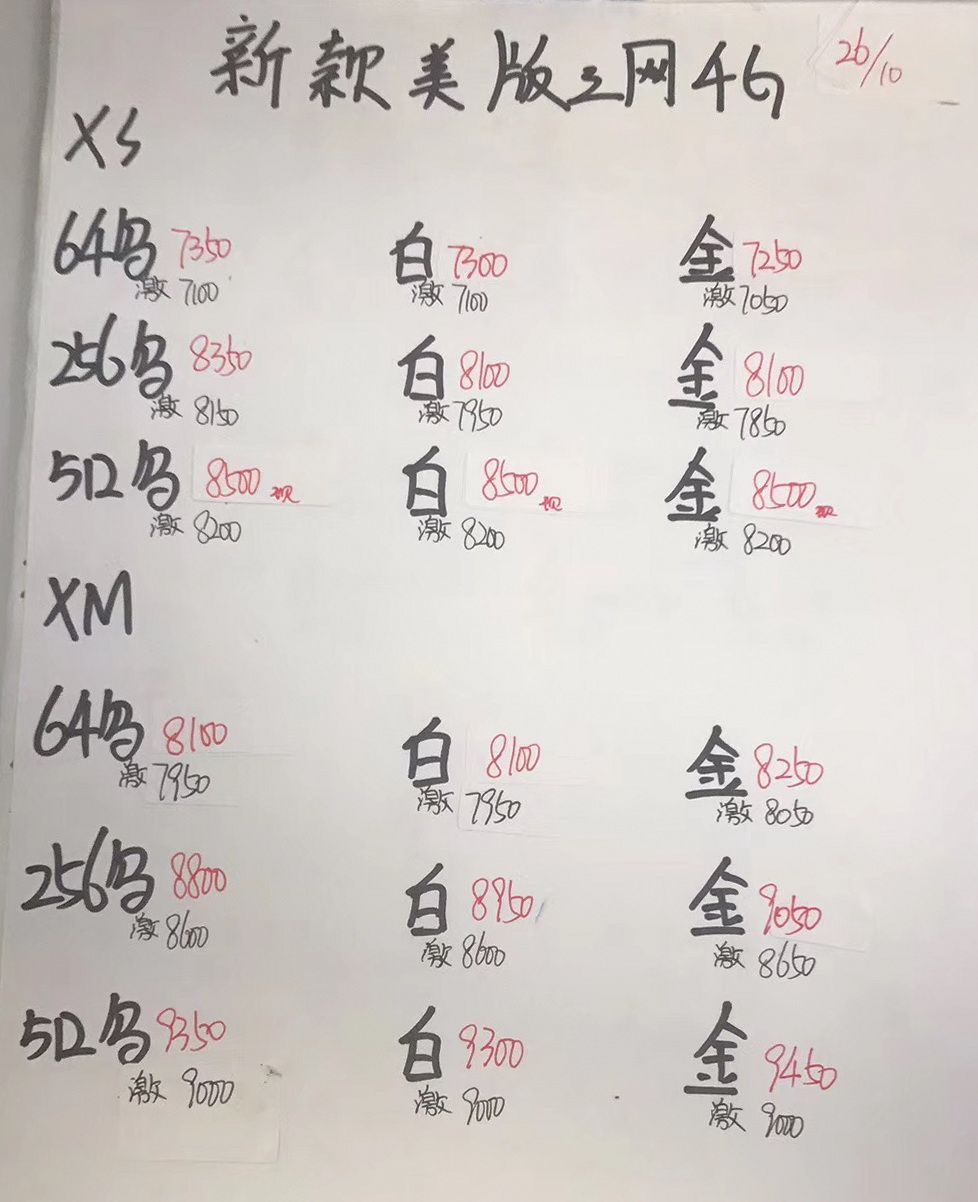 新款美版三网4G 26/10
XS
64乌 7350 白 7300 金 7250
激 7100 激 7100 激 7050
256乌 8350 白 8100 金 8100
激 8150 激 7950 激 7850
512乌 8500 现 白 8500 现 金 8500 现
激 8200 激 8200 激 8200
XM
64乌 8100 白 8100 金 8250
激 7950 激 7950 激 8050
256乌 8800 白 8950 金 9050
激 8600 激 8600 激 8650
512乌 9350 白 9300 金 9450
激 9000 激 9000 激 9000